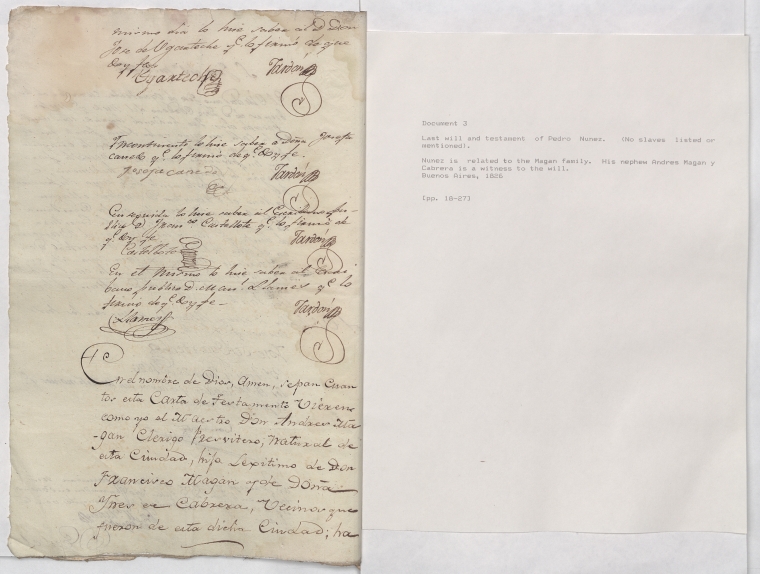 mismo dia lo hice saber al D. Don
Jose de Ugarteche y lo firmó de que
doy fe.
Ugarteche
Tardon
Incontinente lo hice saber a Doña Josefa
Canedo y lo firmó de q.e doy fe.
Josefa Canedo
Tardon
En seguida lo hice saber al Escribano pu-
blico D. Juan Castellote y lo firmó de
q.e doy fe
Castellote
Tardon
En el mismo lo hice saber al Escri-
bano publico D. Man.l Llames q.e lo
firmó de q.e doy fe-
Llames
Tardon
En el nombre de Dios, Amen, sepan Cuan
tos esta Carta de Testamento Vieren
como yo el Maestro Don Andres Ma
-gan Clerigo Presvitero, Natural de
esta Ciudad, hijo Lexitimo de Don
Francisco Magan y de Doña
Ynes de Cabrera, Vecinos que
fueron de esta dicha Ciudad; ha
Document 3
Last will and testament of Pedro Nunez. (No slaves listed or
mentioned).
Nunez is related to the Magan family. His nephew Andres Magan y
Cabrera is a witness to the will.
Buenos Aires, 1826
(pp. 18-27)